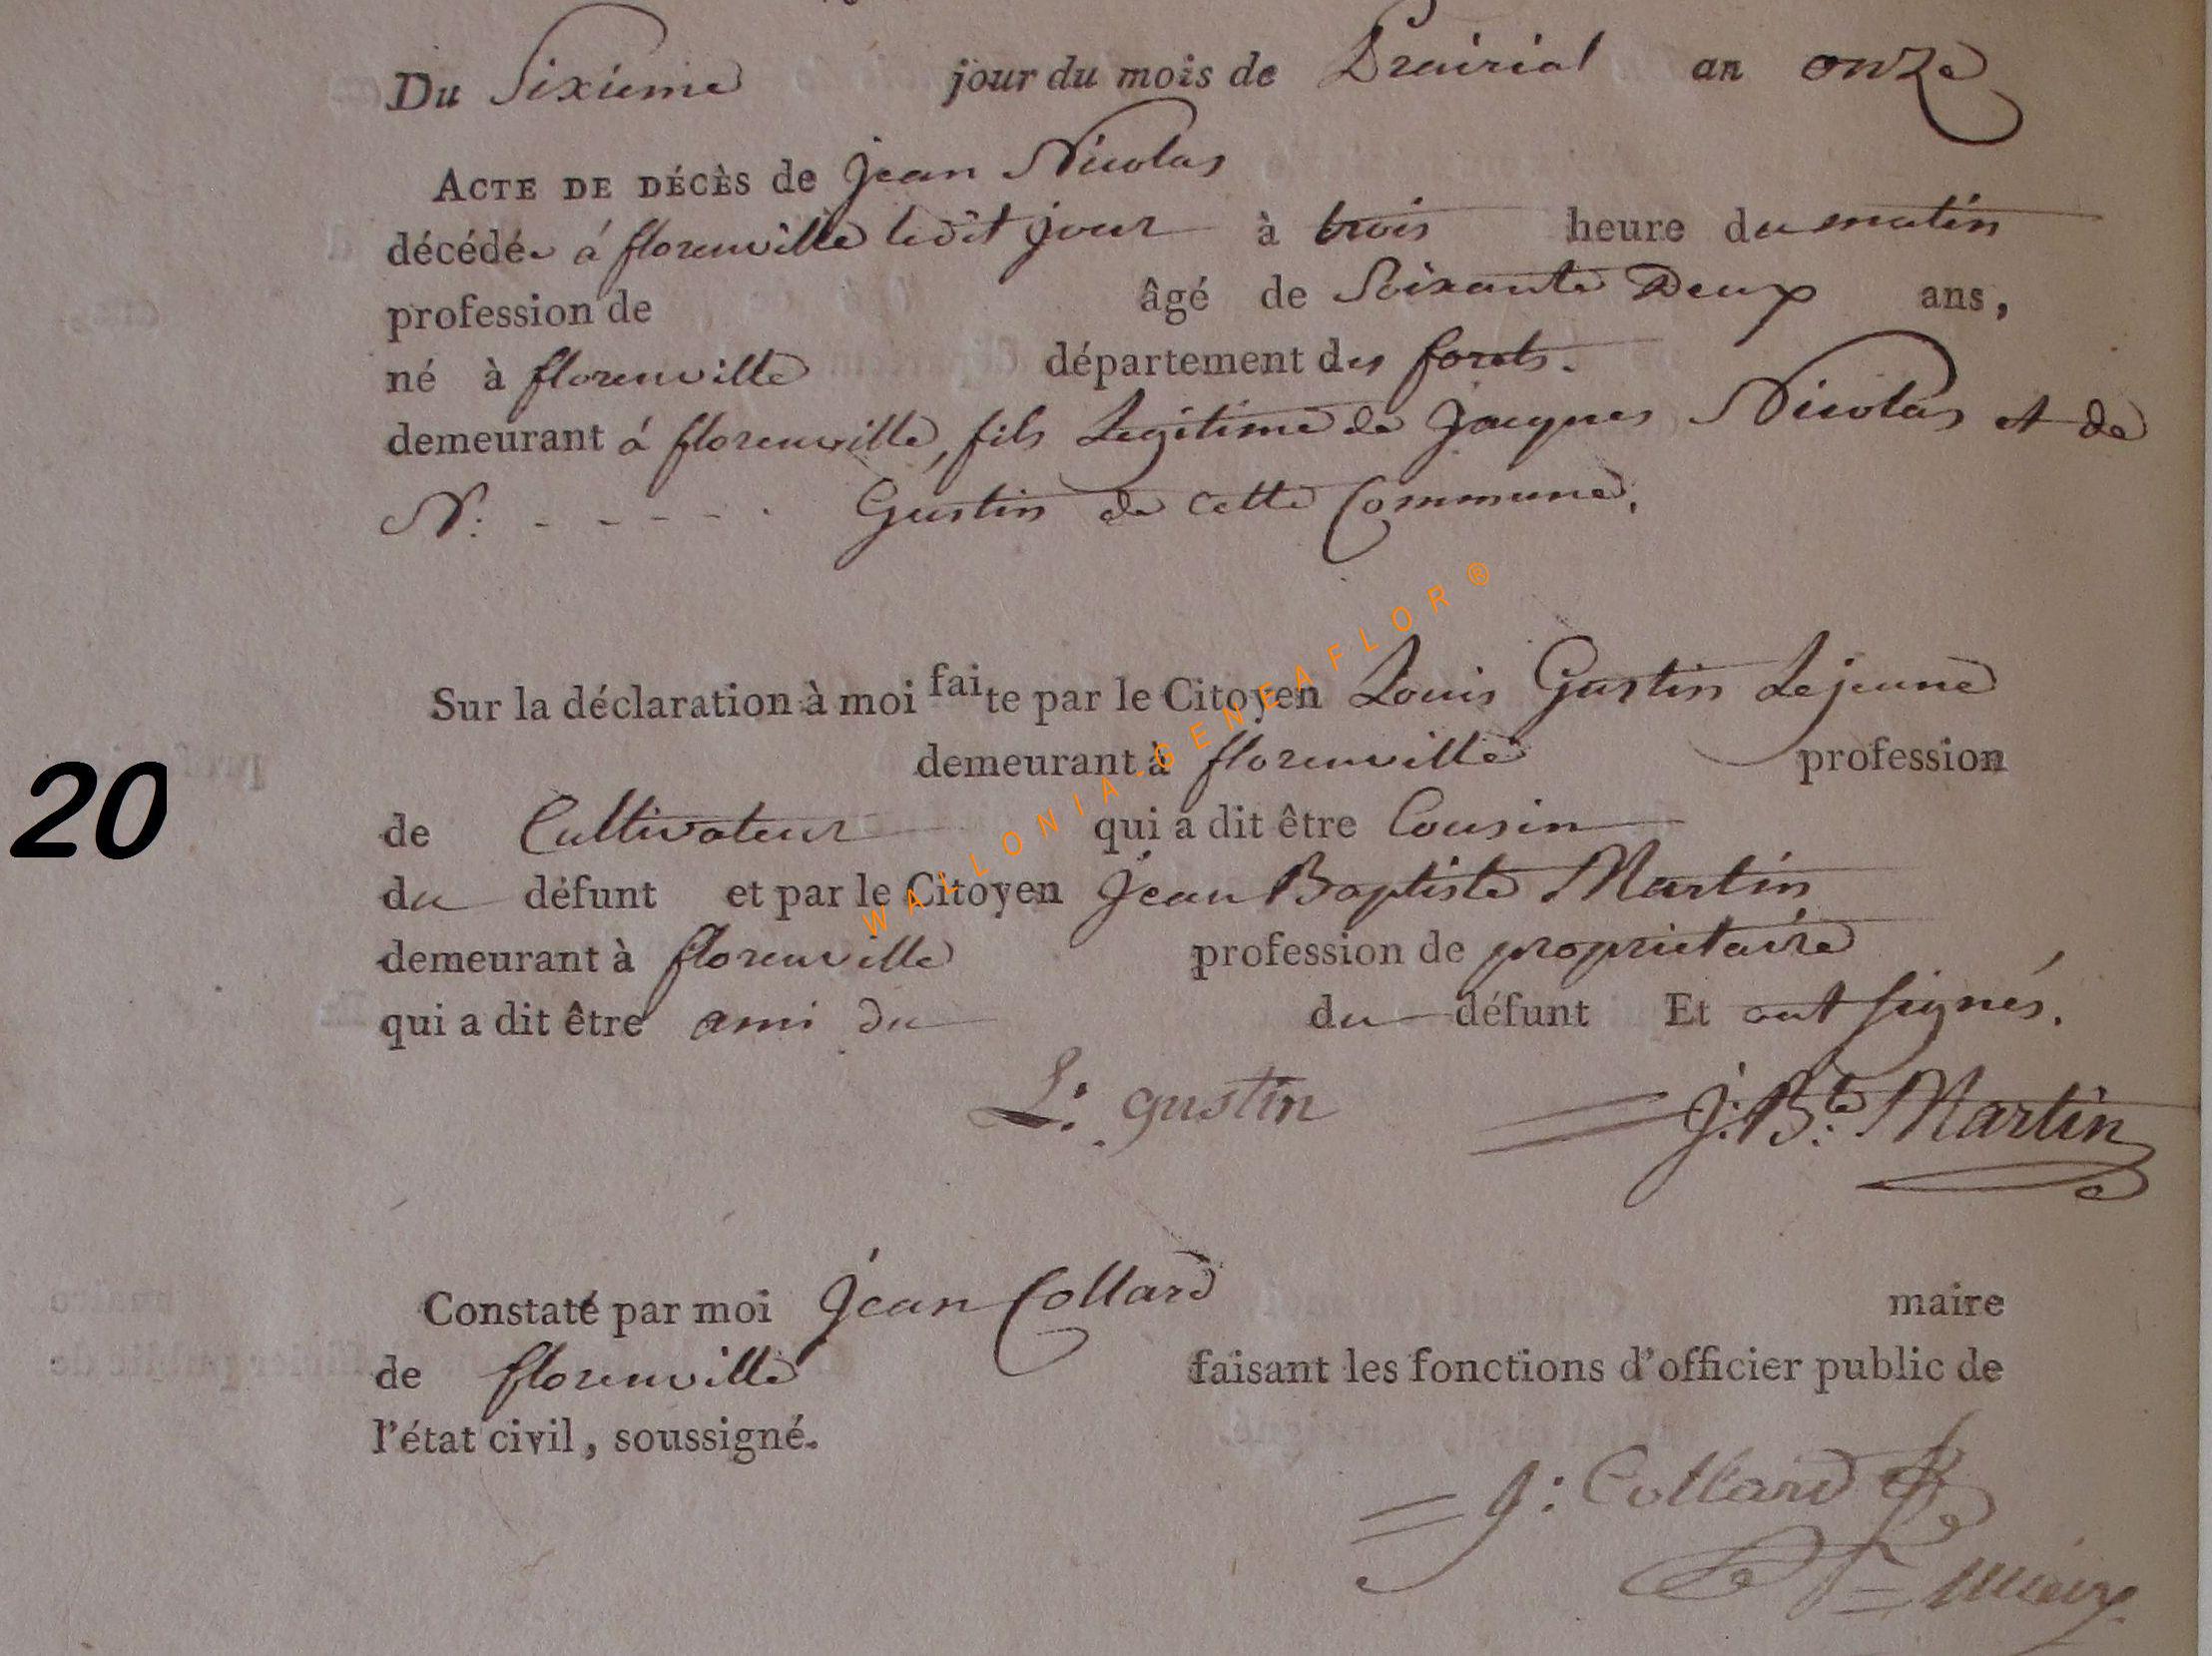 Du Sixieme jour du mois de Prairial an onze
ACTE DE DÉCÈS de jean Nicolas
décédé à florenville ledit jour à trois heure du matin
profession de âgé de Soixante Deux ans,
né à florenville département des forets.
demeurant à florenville, fils Legitime de Jacques Nicolas et de
N. - - - - - Gustin de cette Commune.
Sur la déclaration à moi faite par le Citoyen Louis Gustin Lejeune
demeurant à florenville profession
de Cultivateur qui a dit être Cousin
du défunt et par le Citoyen Jean Baptiste Martin
demeurant à florenville profession de proprietaire
qui a dit être ami du du défunt Et ont signés.
L: gustin J: Bte: Martin
20
Constaté par moi Jean Collard maire
de florenville faisant les fonctions d'officier public de
l'état civil, soussigné.
J: Collard
maire
WALLONIA-GENEAFLOR ®